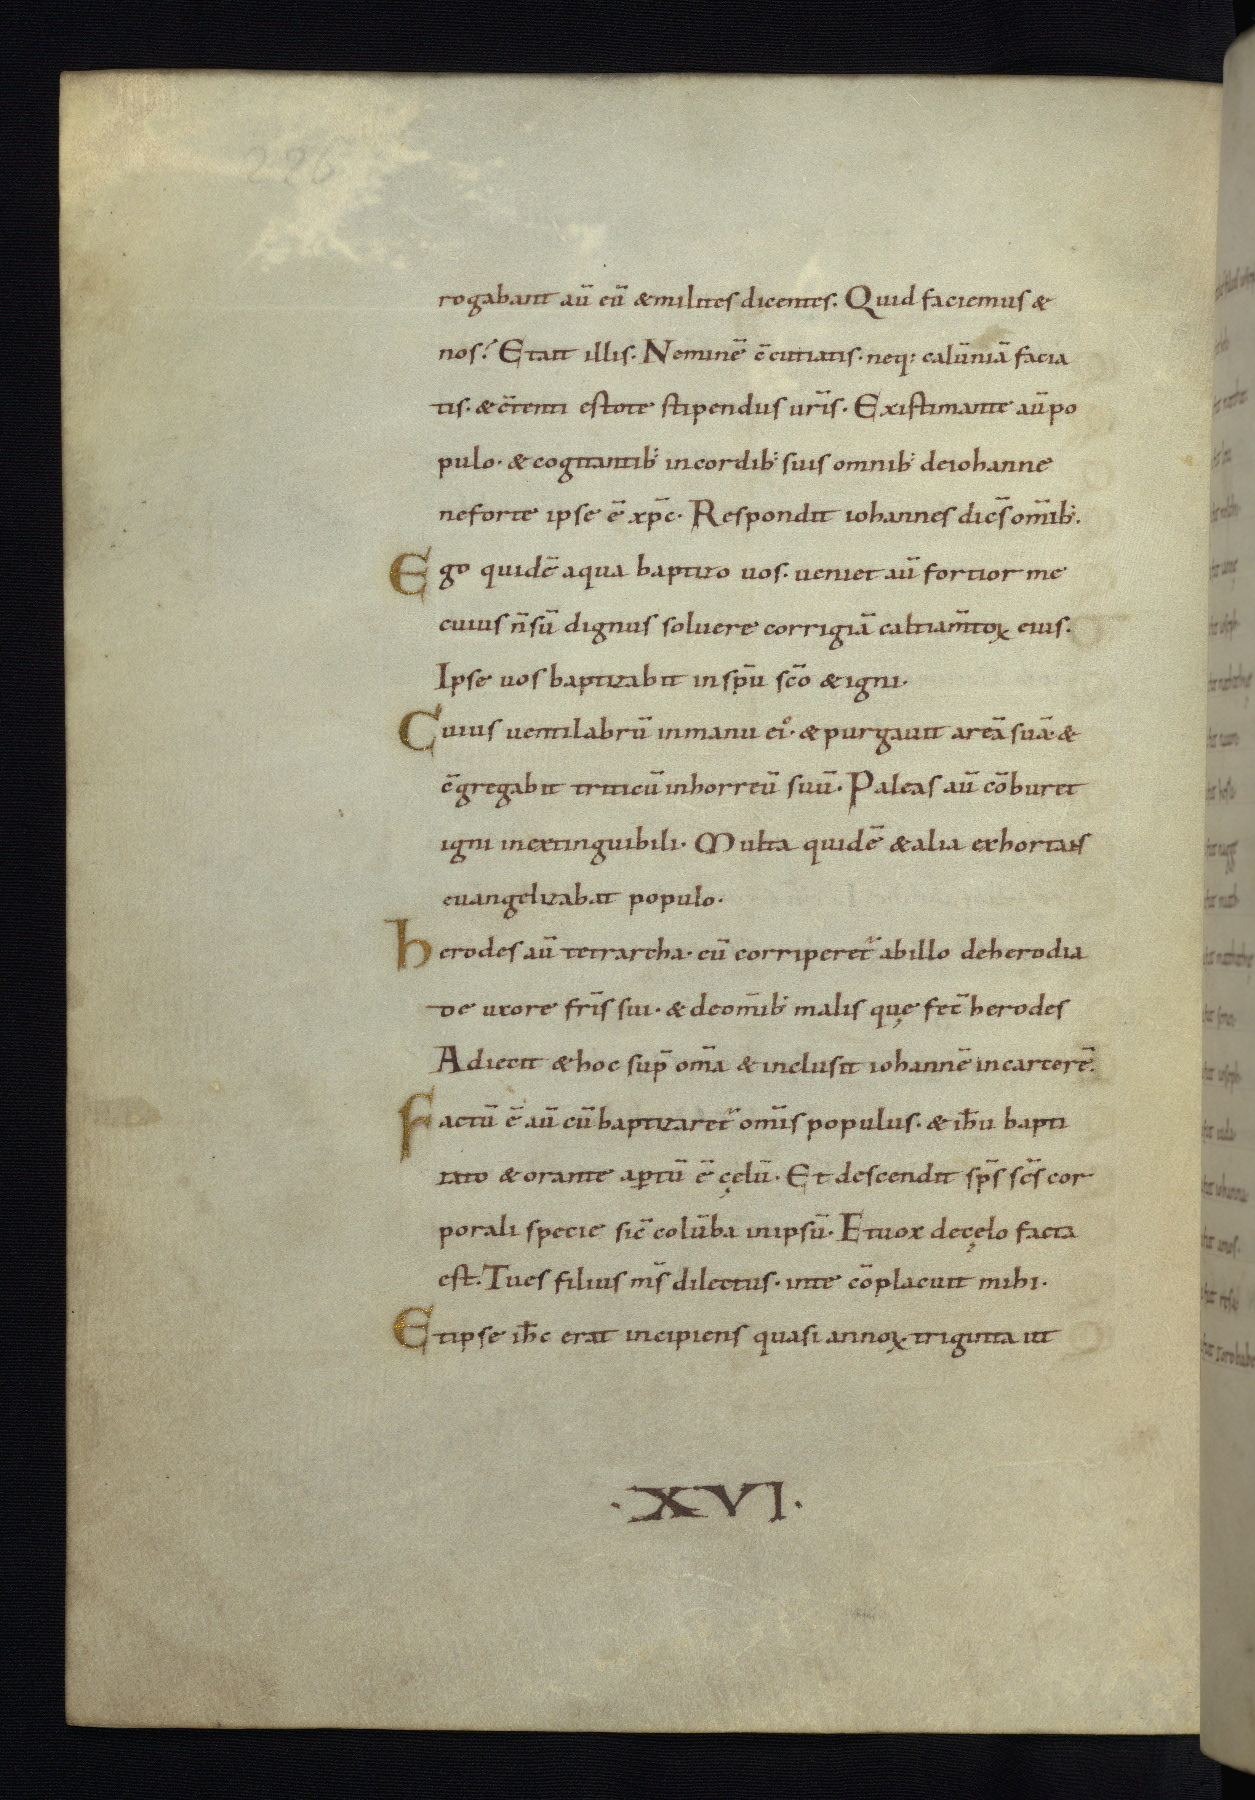 226
rogabant aū eū & milites dicentes. Quid faciemus &
nos? Et ait illis. Neminē c̄cutiatis. neq; calūniā facia
tis. & c̄tenti estote stipendiis ur̄is. Existimante aū po
pulo. & cogitantib; in cordib; suis omnib; de iohanne
ne forte ipse ē xp̄c. Respondit iohannes dic̄s om̄ib;.
Ego quidē aqua baptizo uos. ueniet aū fortior me
cuius n̄ sū dignus soluere corrigiā caltiam̄toꝝ eius.
Ipse uos baptizabit in sp̄u sc̄o & igni.
Cuius uentilabrū in manu ei᾿. & purgauit areā suā. &
c̄gregabit triticū in horreū suū. Paleas aū cōburet
igni inextinguibili. Multa quidē & alia exhortans
euangelizabat populo.
herodes aū tetrarcha. cū corriperet᾿ ab illo de herodia
de uxore fr̄is sui. & de om̄ib; malis quę fec̄ herodes
Adiecit & hoc sup̄ om̄a & inclusit iohannē in carcerē.
Factū ē aū cū baptizaret᾿ om̄is populus. & ih̄u bapti
zato & orante aꝑtū ē cęlū. Et descendit sp̄s sc̄s cor
porali specie sic̄ colūba in ipsū. Et uox de cęlo facta
est. Tu es filius m̄s dilectus. in te cōplacuit mihi.
Et ipse ih̄c erat incipiens quasi annoꝝ triginta ut
.XVI.